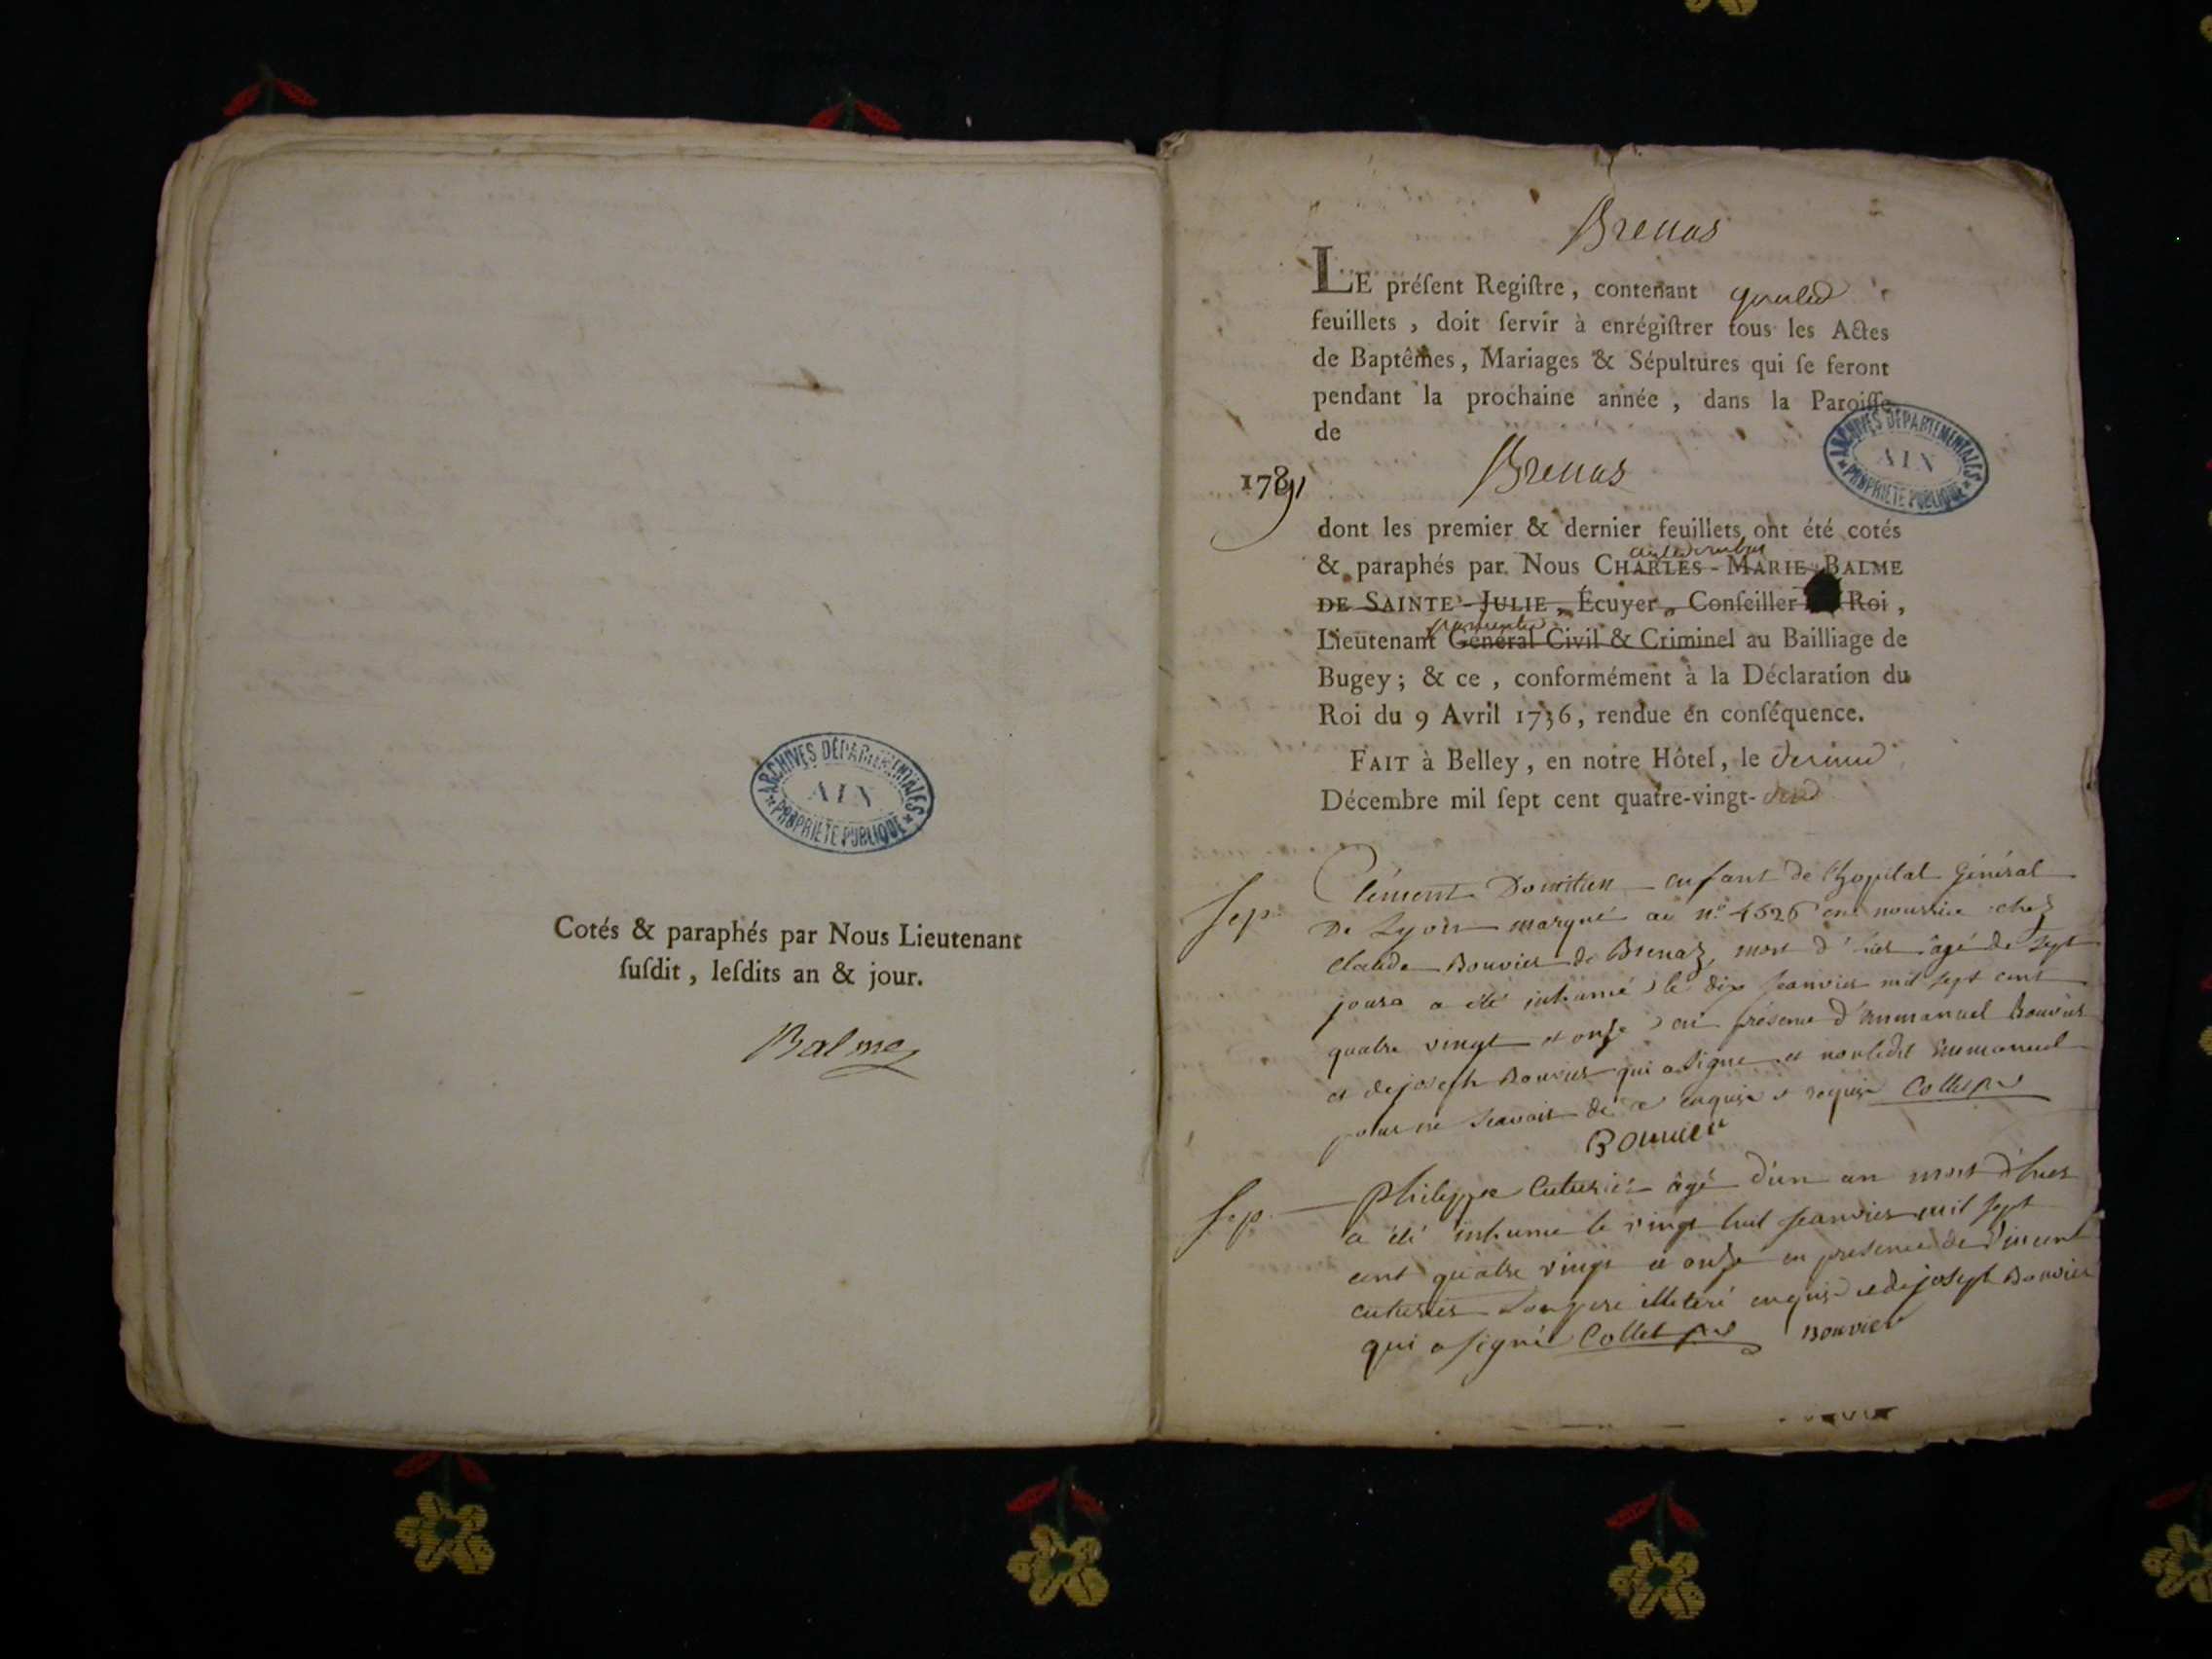 ARCHIVES DÉPARTEMENTALES
AIN
PROPRIÉTÉ PUBLIQUE
Cotés & paraphés par Nous Lieutenant
ſuſdit, leſdits an & jour.
Balme
Brenas
LE préſent Regiſtre, contenant
feuillets, doit ſervir à enrégiſtrer tous les Actes
de Baptêmes, Mariages & Sépultures qui ſe feront
pendant la prochaine année, dans la Paroiſſe
de
ARCHIVES DÉPARTEMENTALES
AIN
PROPRIÉTÉ PUBLIQUE
1791 Brenas
dont les premier & dernier feuillets ont été cotés
& paraphés par Nous CHARLES-MARIE BALME
DE SAINTE-JULIE, Écuyer, Conſeiller Roi,
Lieutenant Général Civil & Criminel au Bailliage de
Bugey; & ce, conformément à la Déclaration du
Roi du 9 Avril 1736, rendue en conſéquence.
FAIT à Belley, en notre Hôtel, le
Décembre mil ſept cent quatre-vingt-
Sep. Clément Domitien enfant de l'hopital Général
De Lyon marqué au n° 4526 en nourrice chez
Claude Bouvier de Brenaz, mort d'hier âgé de sept
jours a été inhumé le dix Janvier mil sept cent
quatre vingt et onze en présence d'Emmanuel Bouvier
et de joseph Bouvier qui a signé et non ledit Emmanuel
pour ne scavoir de ce enquis et requis Collet
Bouvier
Sep. Philippe Cuturier âgé d'un an mort d'hier
a été inhumé le vingt huit Janvier mil sept
cent quatre vingt et onze en presence de Vincent
cuturier son pere illeteré enquis et de joseph Bouvier
qui a signé Collet Bouvier